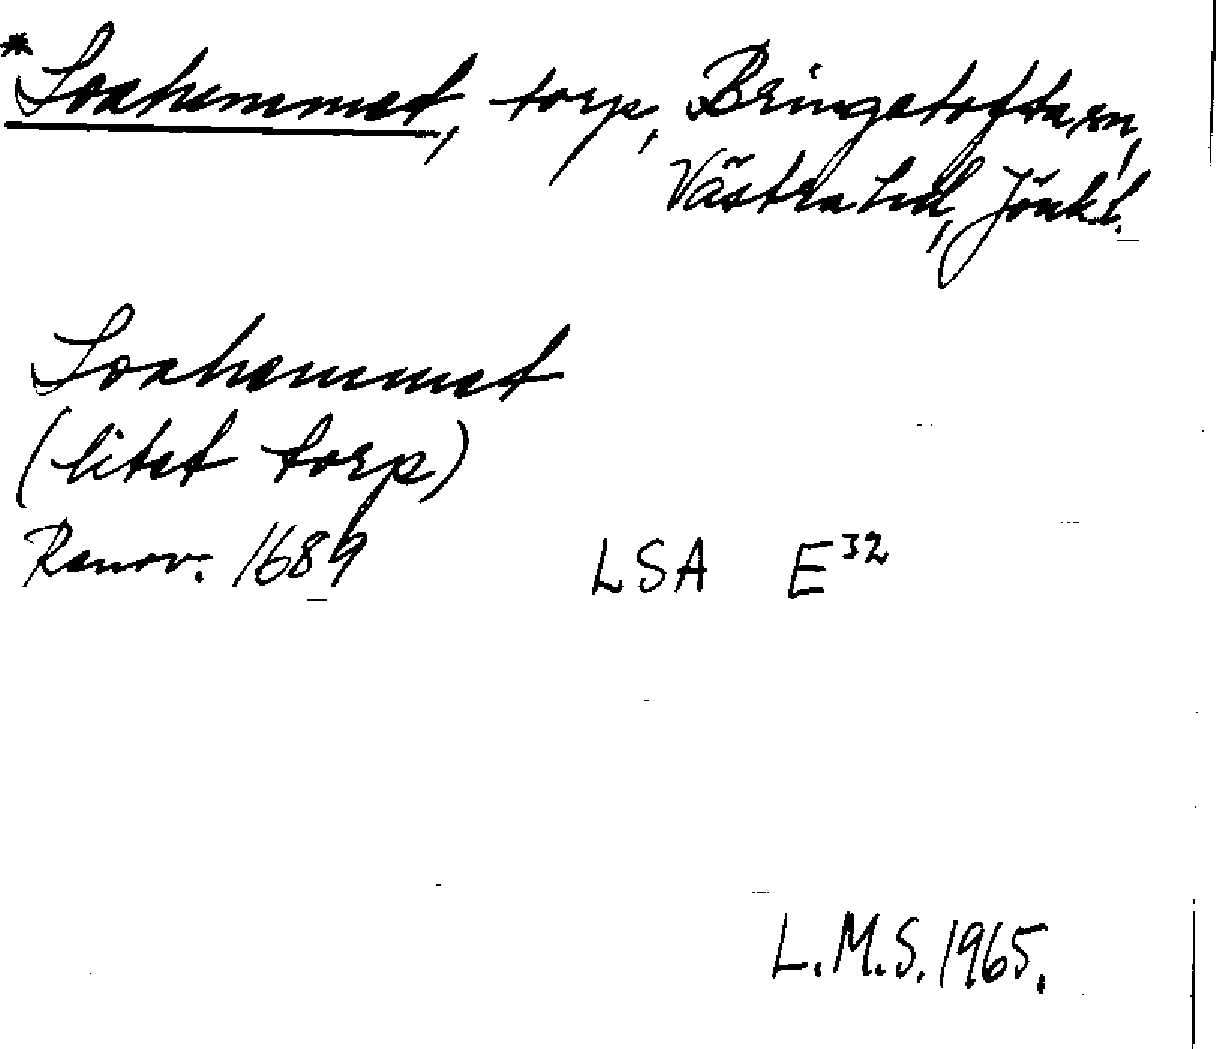 *Soahemmet, torp, Bringetofta sn,
Västra hd, Jönk.l.
Soahemmet
(litet torp)
Renov. 1689 LSA E³²
L.M.S. 1965.